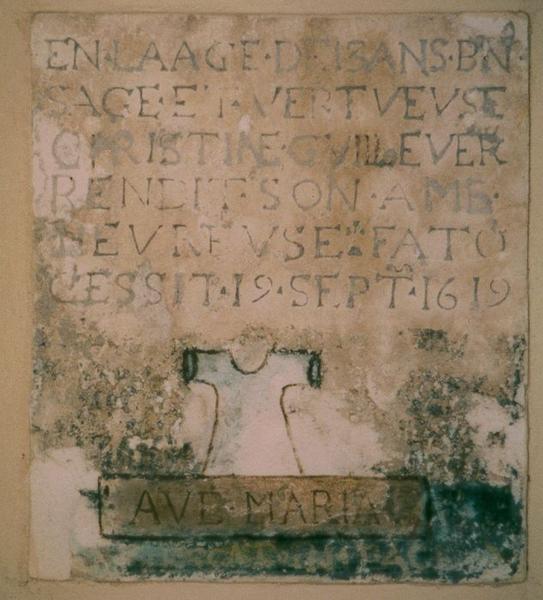 EN·LAAGE·DE·13ANS·BN·
SAGE·ET·VERTVEVSE
CHRISTINE·GVILLEVER
RENDIT·SON·AME·
HEVREVSE·FATO
CESSIT·19·SEPT·1619
AVE MARIA